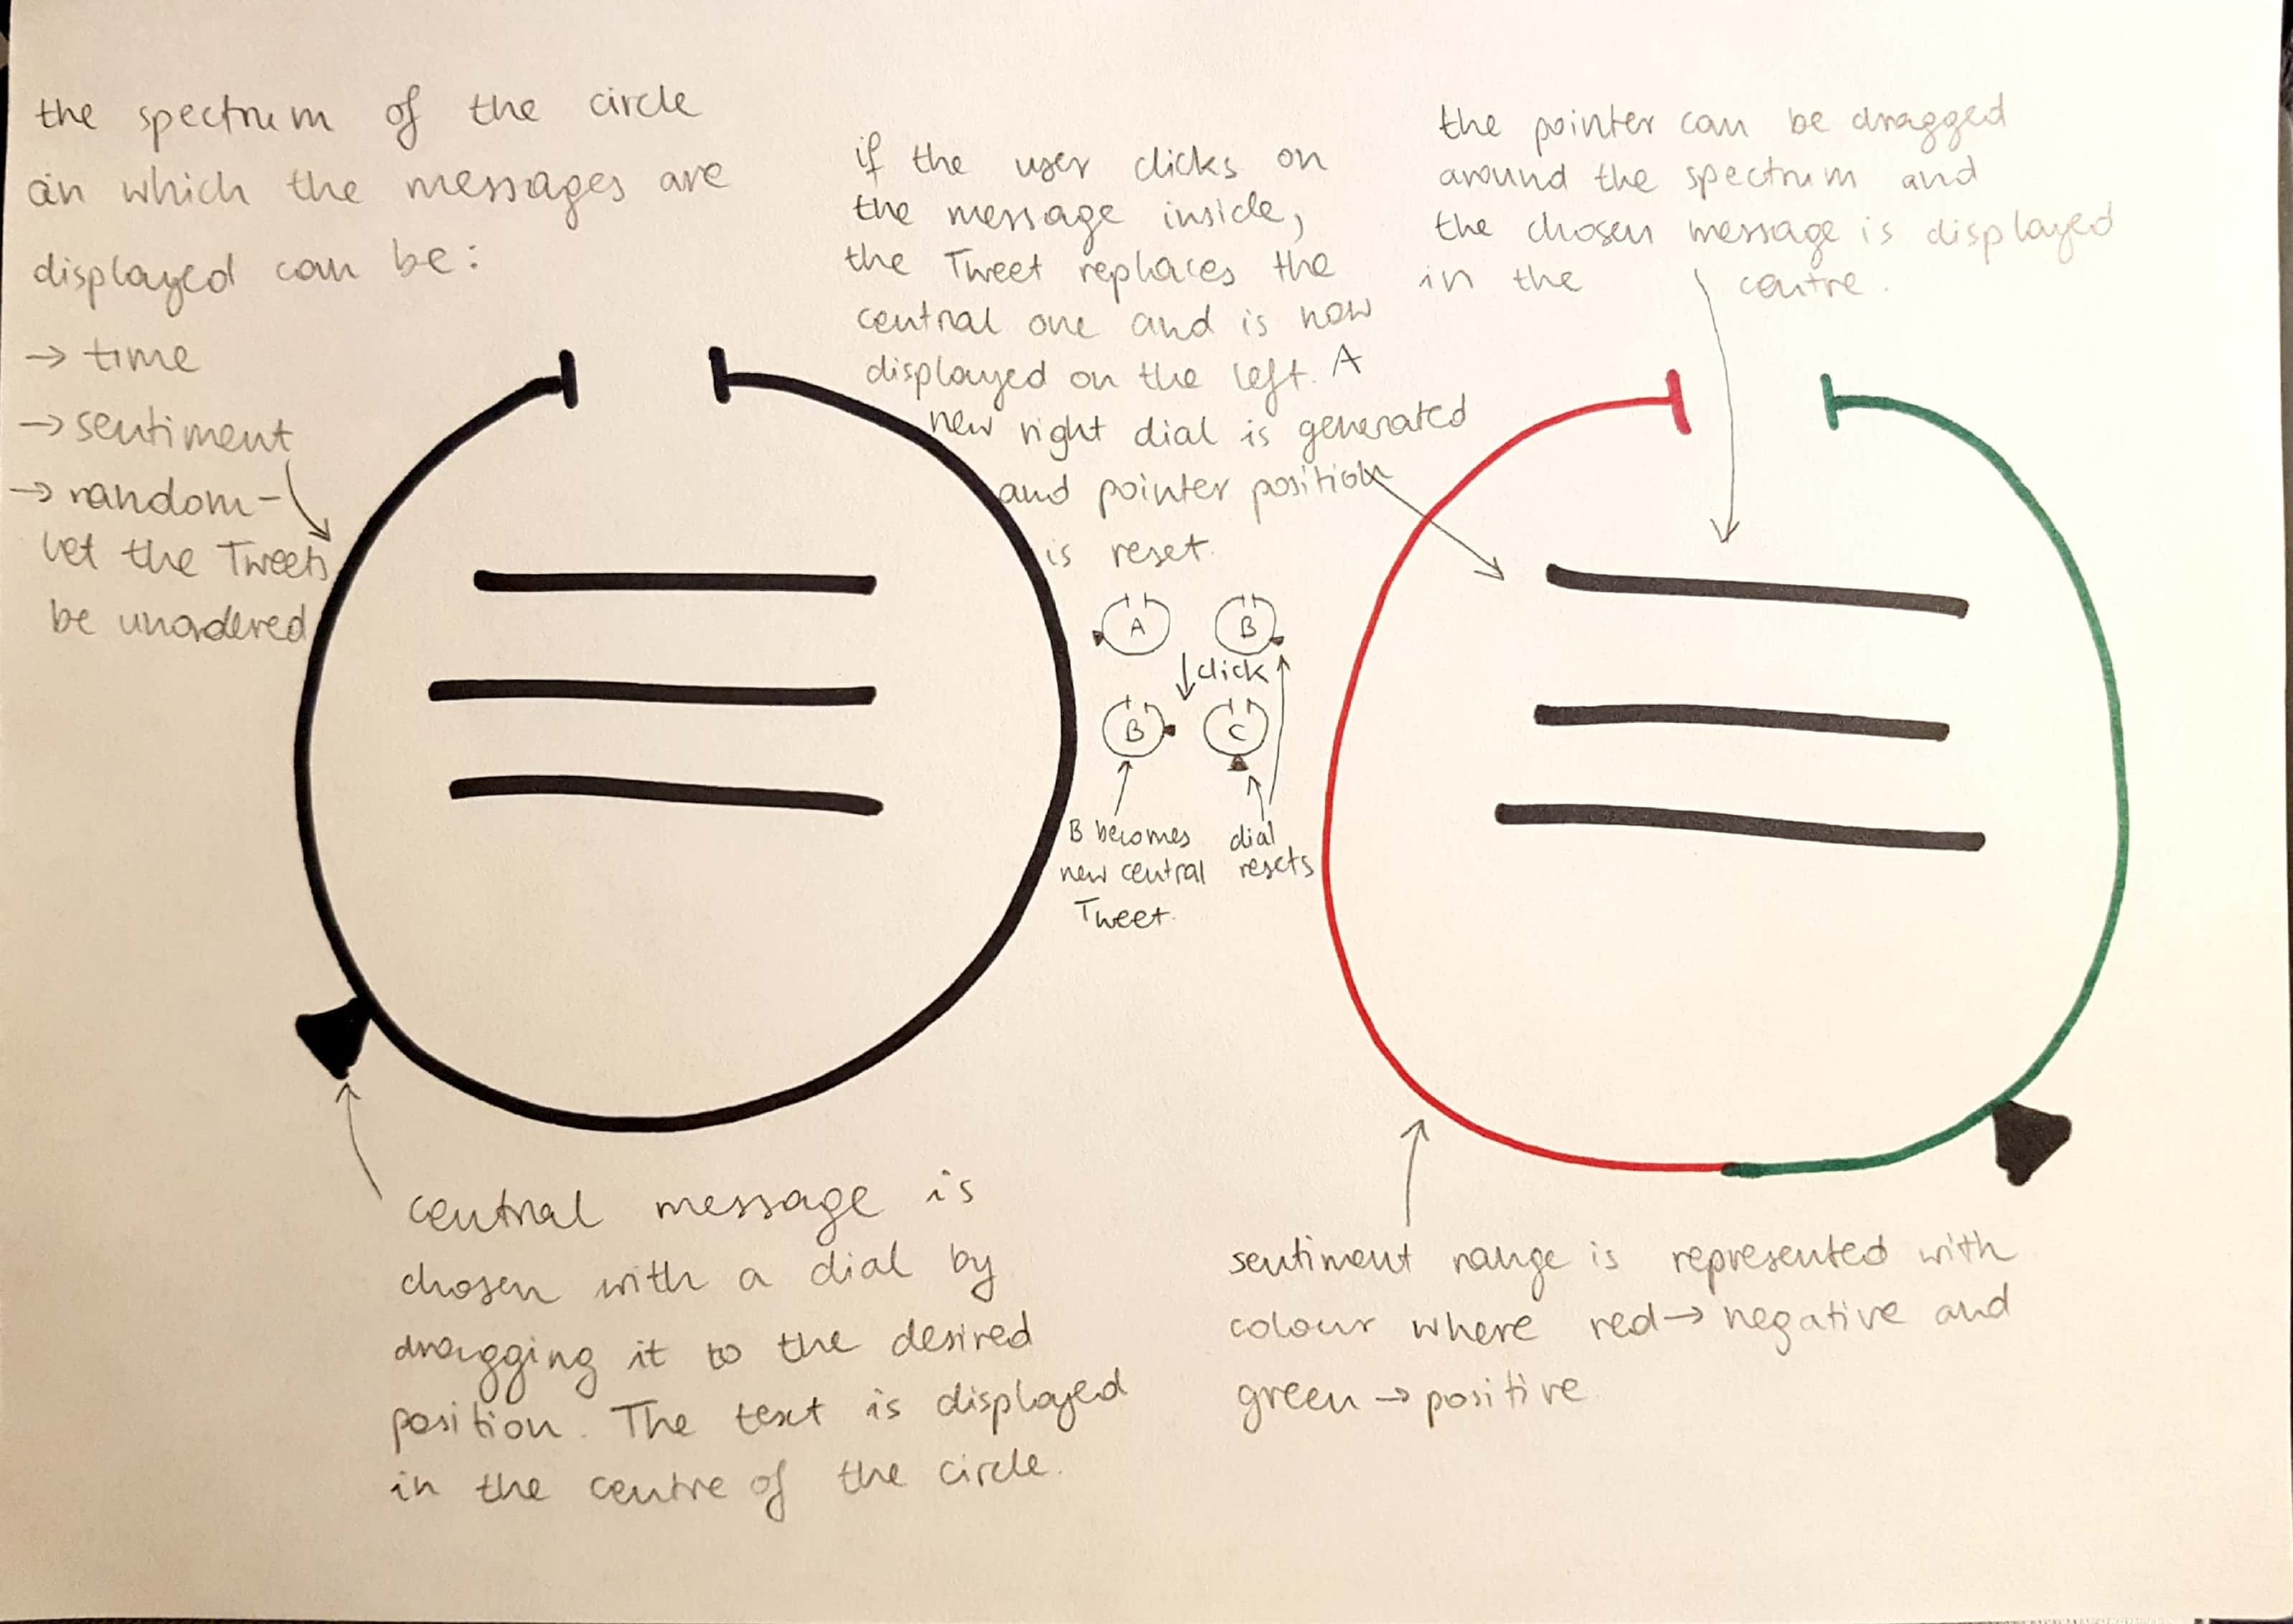 the spectrum of the circle
on which the messages are
displayed can be:
→ time
→ sentiment
→ random -
let the Tweets
be unordered
if the user clicks on
the message inside,
the Tweet replaces the
central one and is now
displayed on the left. A
new right dial is generated
and pointer position
is reset.
the pointer can be dragged
around the spectrum and
the chosen message is displayed
in the centre.
A B
click
B C
B becomes
new central
Tweet.
dial
resets
central message is
chosen with a dial by
dragging it to the desired
position. The text is displayed
in the centre of the circle.
sentiment range is represented with
colour where red → negative and
green → positive